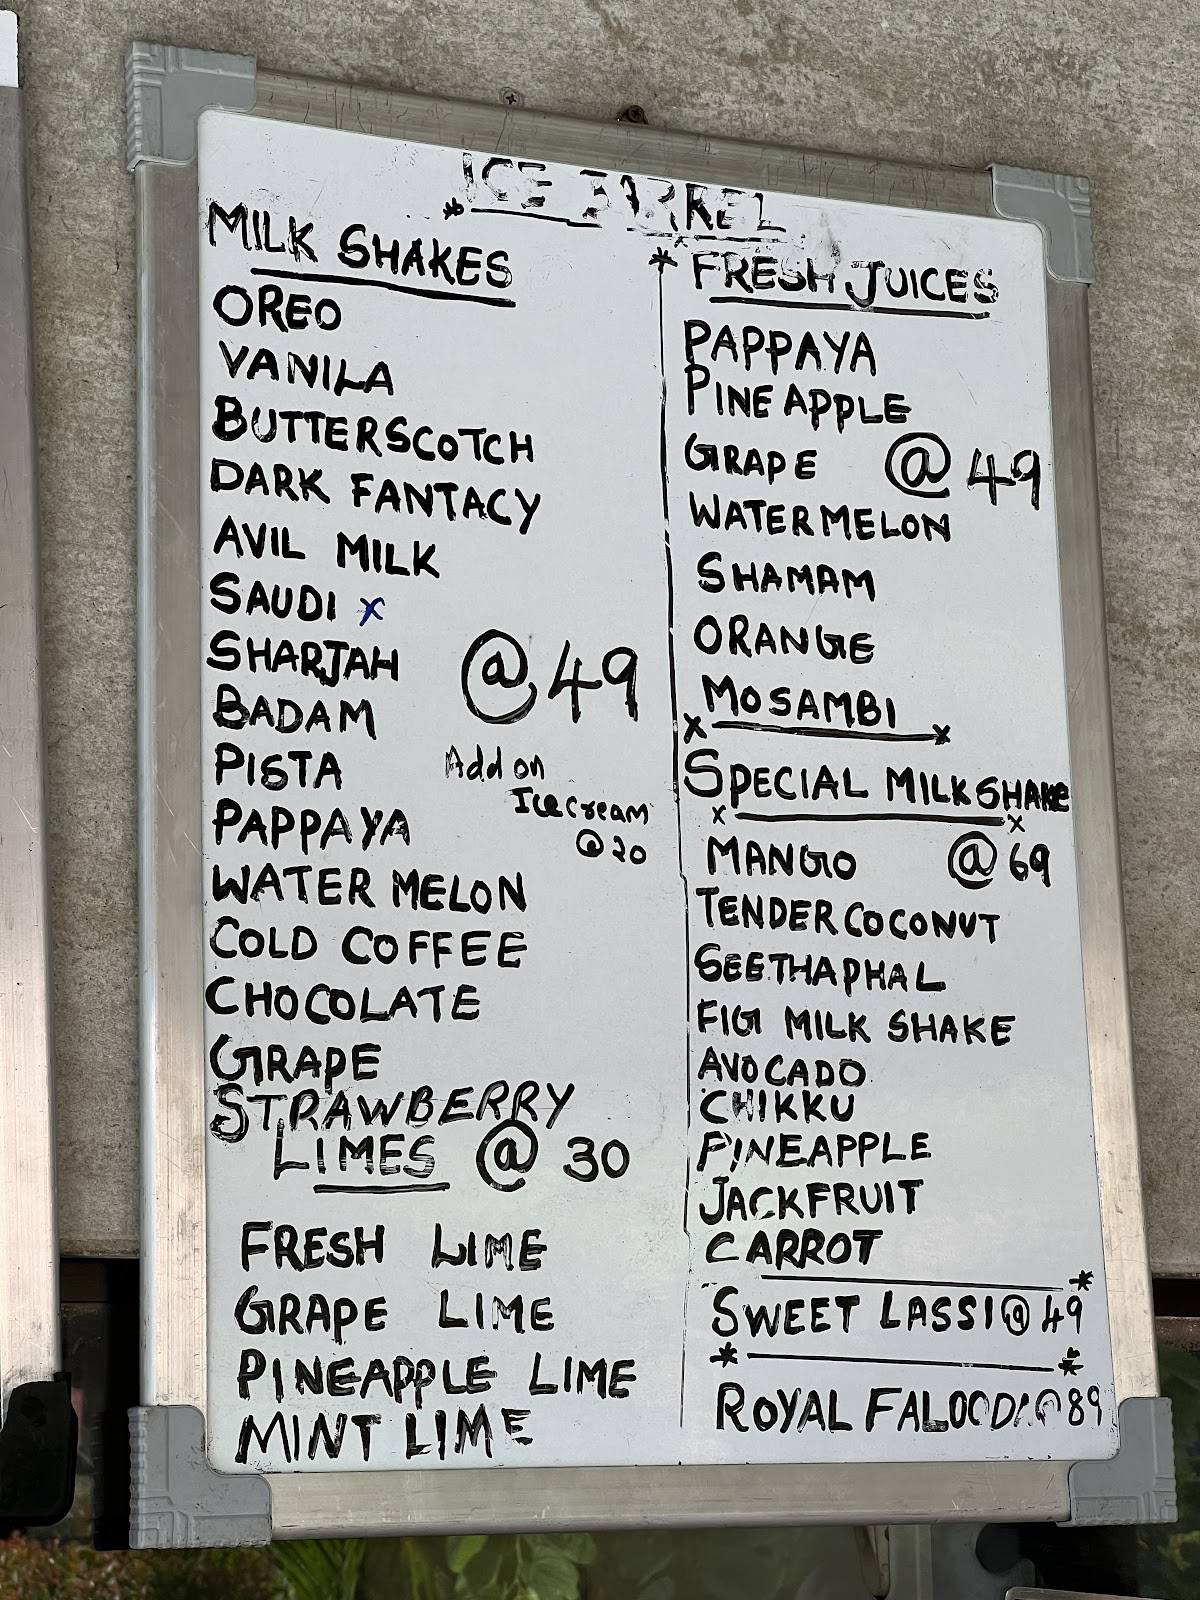 ICE BARREL
MILK SHAKES
OREO
VANILA
BUTTERSCOTCH
DARK FANTACY
AVIL MILK
SAUDI x
SHARJAH
BADAM
PISTA
PAPPAYA
WATER MELON
COLD COFFEE
CHOCOLATE
GRAPE
STRAWBERRY
@ 49
Add on
Ice cream
@ 20
LIMES @ 30
FRESH LIME
GRAPE LIME
PINEAPPLE LIME
MINT LIME
FRESH JUICES
PAPPAYA
PINEAPPLE
GRAPE @ 49
WATERMELON
SHAMAM
ORANGE
MOSAMBI
SPECIAL MILK SHAKe
MANGO @ 69
TENDER COCONUT
SEETHAPHAL
FIG MILK SHAKE
AVOCADO
CHIKKU
PINEAPPLE
JACKFRUIT
CARROT
SWEET LASSI @ 49
ROYAL FALOODA @ 89